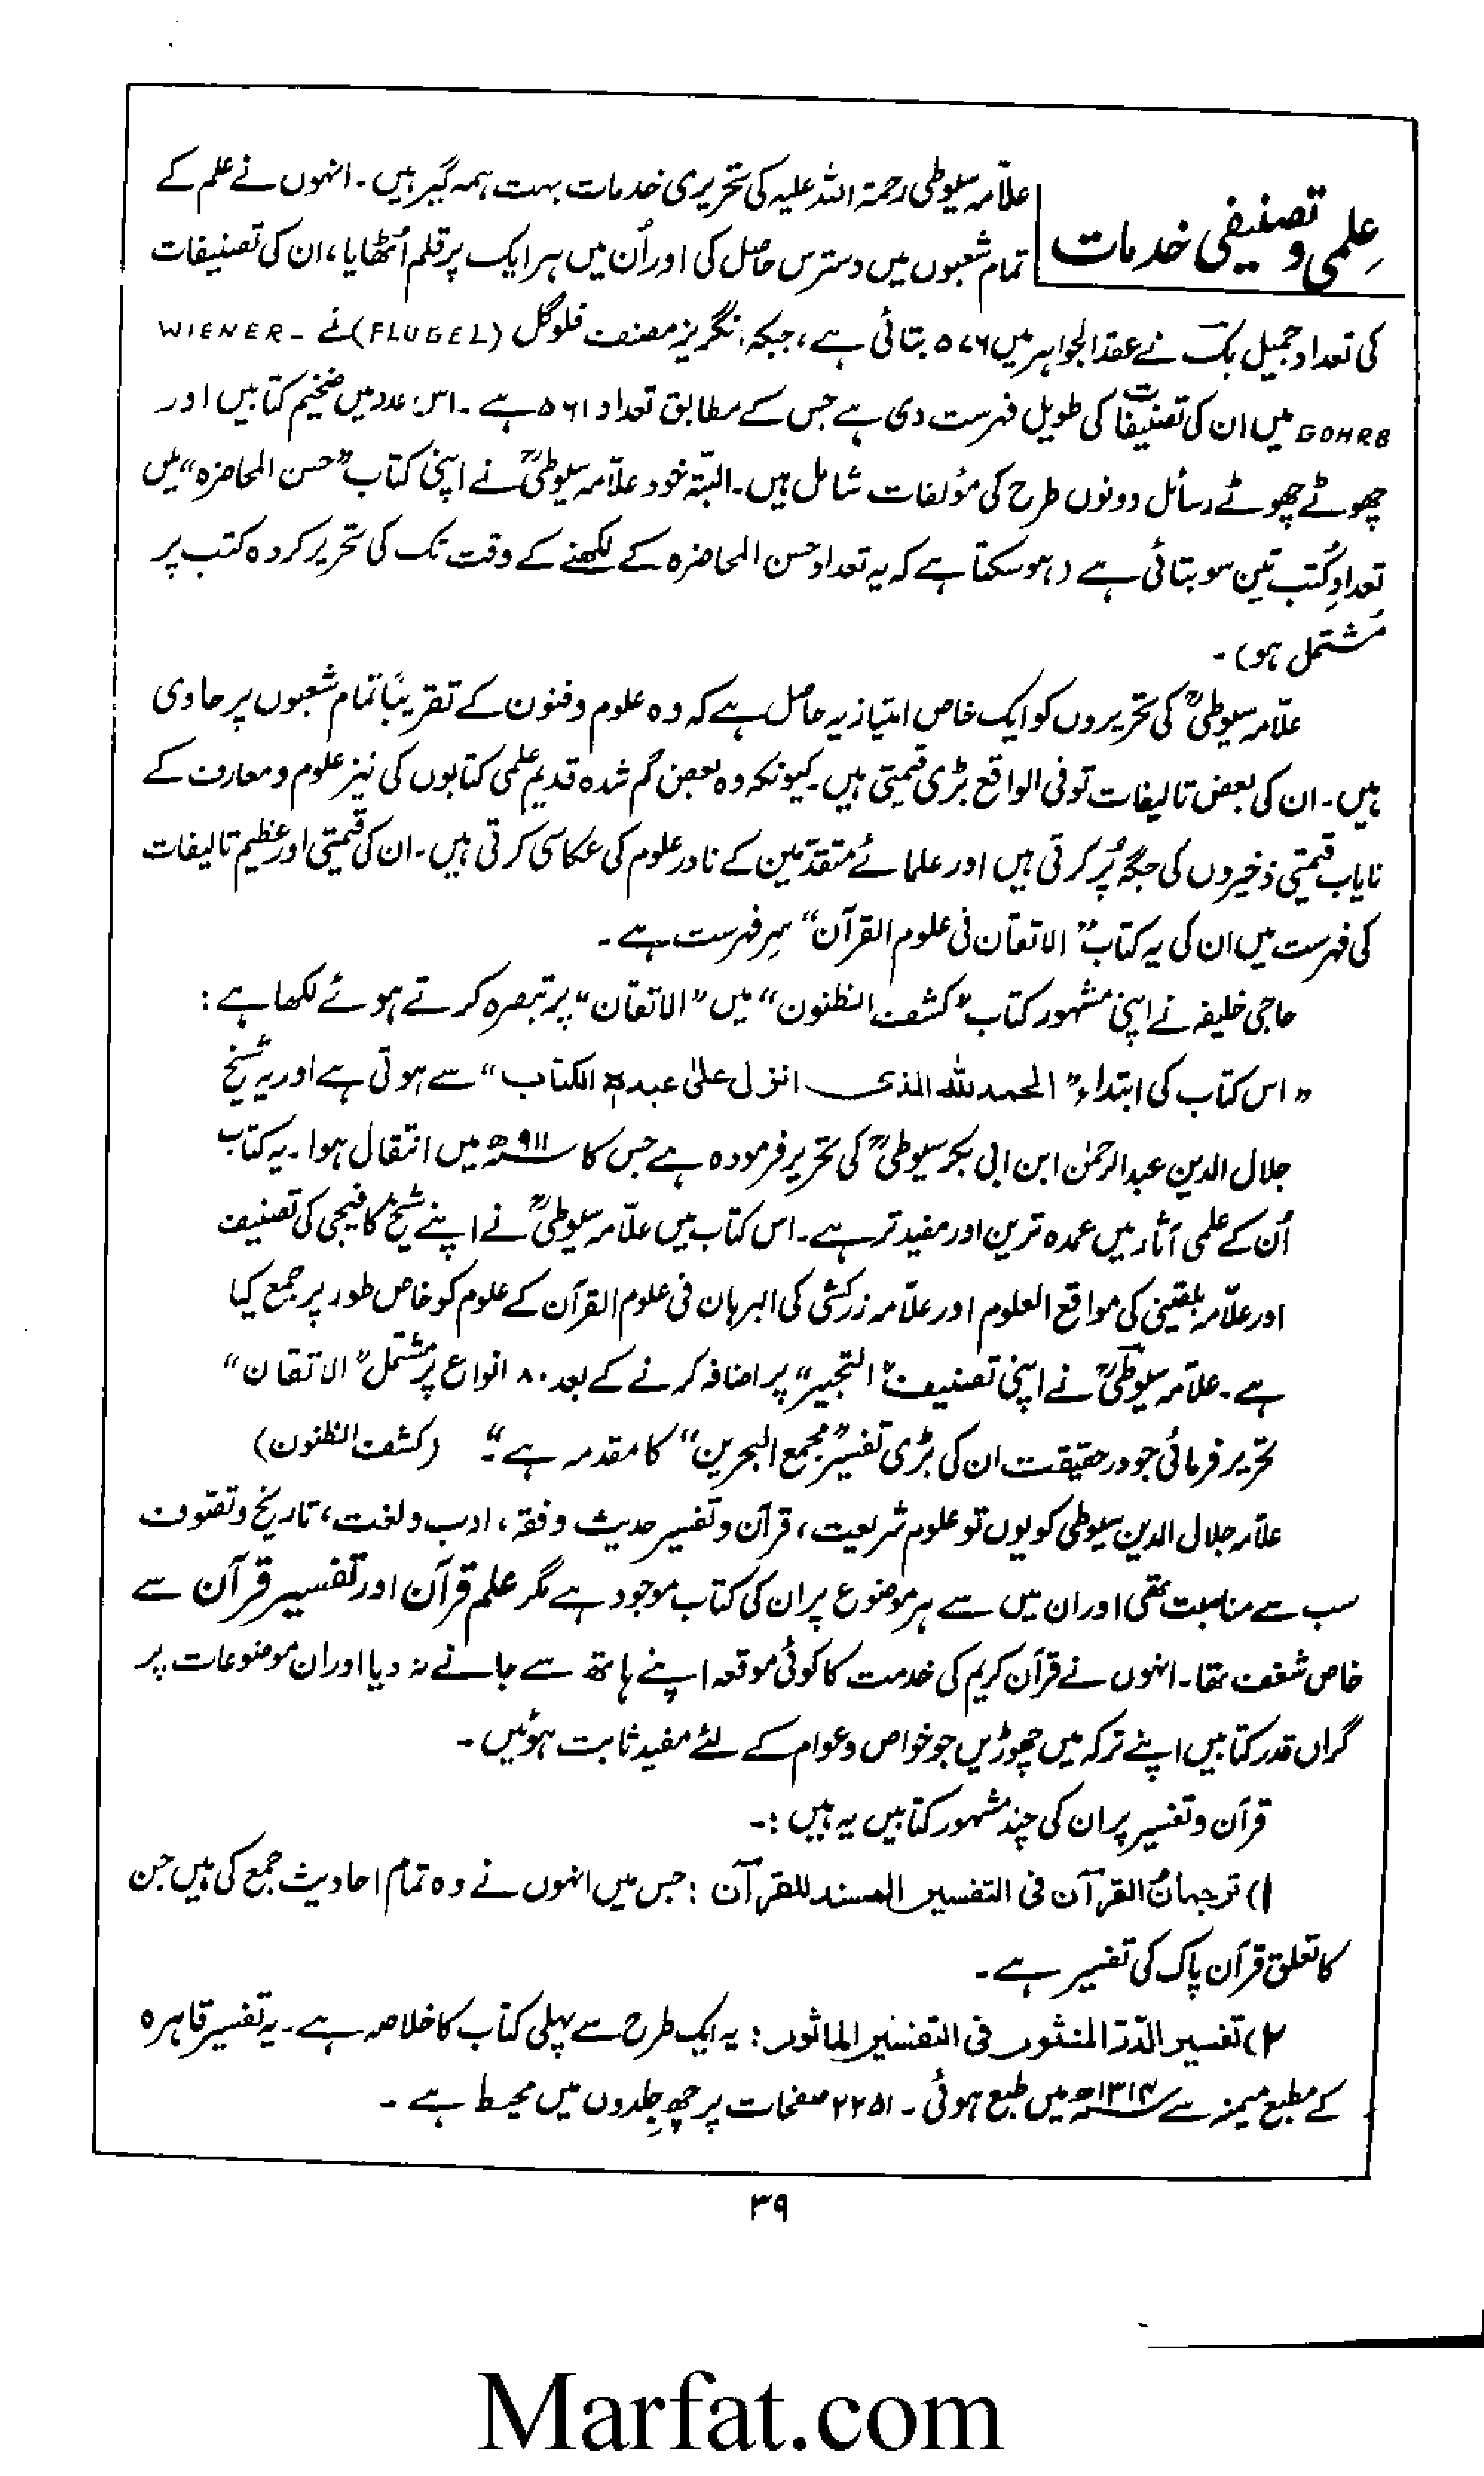 علمی و تصنیفی خدمات
علامہ سیوطی رحمۃ اللہ علیہ کی تحریری خدمات بہت ہمہ گیر ہیں۔ انہوں نے علم کے
تمام شعبوں میں دسترس حاصل کی اور اُن میں ہر ایک پر قلم اُٹھایا، ان کی تصنیفات
کی تعداد جمیل بک نے عقد الجواہر میں ۵۷۶ بتائی ہے، جبکہ انگریز مصنف فلوگل (FLUGEL) نے WIENER-
GOHRB میں ان کی تصنیفات کی طویل فہرست دی ہے جس کے مطابق تعداد ۵۶۱ ہے۔ اس عدد میں ضخیم کتابیں اور
چھوٹے چھوٹے رسائل دونوں طرح کی مؤلفات شامل ہیں۔ البتہ خود علّامہ سیوطیؒ نے اپنی کتاب "حسن المحاضرہ" میں
تعدادِ کُتب تین سو بتائی ہے (ہو سکتا ہے کہ یہ تعداد حسن المحاضرہ کے لکھنے کے وقت تک کی تحریر کردہ کتب پر
مُشتمل ہو)۔
علّامہ سیوطیؒ کی تحریروں کو ایک خاص امتیاز یہ حاصل ہے کہ وہ علوم و فنون کے تقریباً تمام شعبوں پر حاوی
ہیں۔ ان کی بعض تالیفات تو فی الواقع بڑی قیمتی ہیں۔ کیونکہ وہ بعض گم شدہ قدیم علمی کتابوں کی نیز علوم و معارف کے
نایاب قیمتی ذخیروں کی جگہ پُر کرتی ہیں اور علمائے متقدّمین کے نادر علوم کی عکاسی کرتی ہیں۔ ان کی قیمتی اور عظیم تالیفات
کی فہرست میں ان کی یہ کتاب "الاتقان فی علوم القرآن" سرِ فہرست ہے۔
حاجی خلیفہ نے اپنی مشہور کتاب "کشف الظنون" میں "الاتقان" پر تبصرہ کرتے ہوئے لکھا ہے:
"اس کتاب کی ابتداء "الحمد للہ الذی انزل علیٰ عبدہ الکتاب" سے ہوتی ہے اور یہ شیخ
جلال الدین عبدالرحمٰن ابن ابی بکر سیوطیؒ کی تحریر فرمودہ ہے جس کا ۹۱۱ھ میں انتقال ہوا۔ یہ کتاب
اُن کے علمی آثار میں عمدہ ترین اور مفید تر ہے۔ اس کتاب میں علّامہ سیوطیؒ نے اپنے شیخ کافیجی کی تصنیف
اور علّامہ بلقینی کی مواقع العلوم اور علّامہ زرکشی کی البرہان فی علوم القرآن کے علوم کو خاص طور پر جمع کیا
ہے۔ علّامہ سیوطیؒ نے اپنی تصنیف "التحبیر" پر اضافہ کرنے کے بعد ۸۰ انواع پر مشتمل "الاتقان"
تحریر فرمائی جو در حقیقت ان کی بڑی تفسیر "مجمع البحرین" کا مقدمہ ہے"۔ (کشف الظنون)
علامہ جلال الدین سیوطی کو یوں تو علوم شریعت، قرآن و تفسیر حدیث و فقہ، ادب و لغت، تاریخ و تصّوف
سب سے مناسبت تھی اور ان میں سے ہر موضوع پر ان کی کتاب موجود ہے مگر علم قرآن اور تفسیر قرآن سے
خاص شغف تھا۔ انہوں نے قرآن کریم کی خدمت کا کوئی موقعہ اپنے ہاتھ سے جانے نہ دیا اور ان موضوعات پر
گراں قدر کتابیں اپنے ترکہ میں چھوڑیں جو خواص و عوام کے لئے مفید ثابت ہوئیں۔
قرآن و تفسیر پر ان کی چند مشہور کتابیں یہ ہیں :۔
۱) ترجمان القرآن فی التفسیر المسند للقرآن : جس میں انہوں نے وہ تمام احادیث جمع کی ہیں جن
کا تعلق قرآن پاک کی تفسیر ہے۔
۲) تفسیر الدّرّ المنثور فی التفسیر الماثور : یہ ایک طرح سے پہلی کتاب کا خلاصہ ہے۔ یہ تفسیر قاہرہ
کے مطبع میمنہ سے ۱۳۱۴ھ میں طبع ہوئی۔ ۲۲۵۱ صفحات پر چھ جِلدوں میں محیط ہے۔
۳۹
Marfat.com